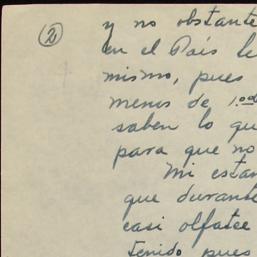 (2)
y no obstante
en el País le
mismo, pues
menos de 1.00
saben lo qu
para que no
Mi estan
que durante
casi olfatee
tenido pues